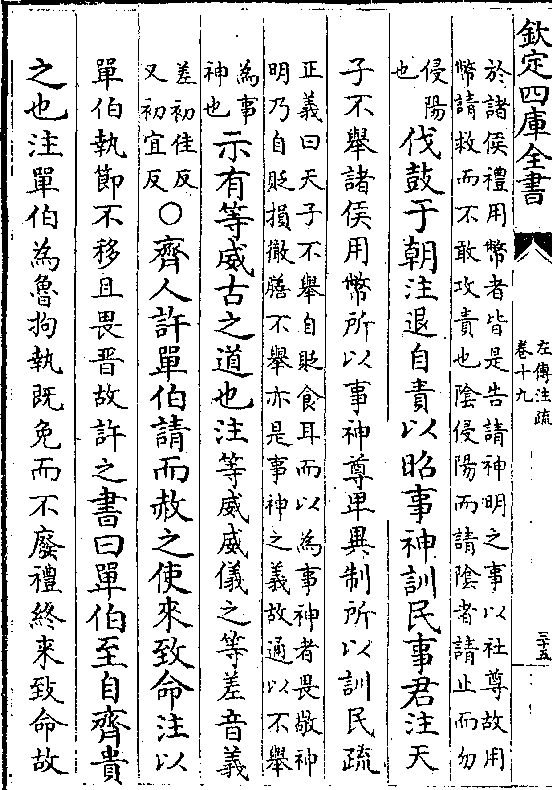 欽定四庫全書
左傳注疏
卷十九
三十五
於諸侯禮用幣者皆是告請神明之事以社尊故用
幣請救而不敢攻責也陰侵陽而請陰者請止而勿
侵陽
也
伐鼓于朝注退自責以昭事神訓民事君注天
子不舉諸侯用幣所以事神尊卑異制所以訓民疏
正義曰天子不舉自貶食耳而以為事神者畏敬神
明乃自貶損徹膳不舉亦是事神之義故通以不舉
為事
神也
示有等威古之道也注等威威儀之等差音義
差初佳反
又初宜反
○齊人許單伯請而赦之使來致命注以
單伯執節不移且畏晋故許之書曰單伯至自齊貴
之也注單伯為魯拘執既免而不廢禮終来致命故